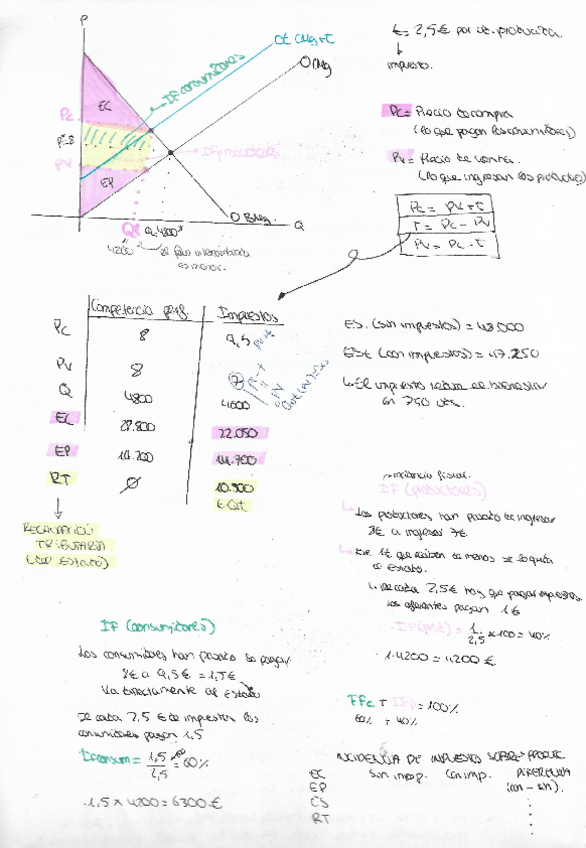 P
Ot CMg+t
t = 2,5€ por ud. producida
impuesto.
IF consumidores
O CMg
EC
Pc
P*=8
Pv
EP
IF productores
Pc = Precio de compra
(lo que pagan los consumidores)
Pv = Precio de venta.
(lo que ingresan los productores)
Pc = Pv + t
T = Pc - Pv
Pv = Pc - t
Q
4800
D BMg.
4200
Competencia perf.
Impuestos
Pc 8 9,5 Pv+t
Pv 8 7 Pc-t
Q 4800 4200
EC 28.800 22.050
EP 19.200 14.700
RT Ø 10.500
t·Qt
RECAUDACIÓ
TRIBUTARIA
(del ESTADO)
ES. (sin impuestos) = 48.000
ESt (con impuestos) = 47.250
El impuesto reduce el bienestar
en 750 uds.
incidencia fiscal.
IF (productores)
Los productores, han pasado de ingresar
8€ a ingresar 7€.
Ese 1€ que reciben de menos se lo queda
el estado.
De cada 2,5€ hay que pagar impuestos
los oferentes pagan 1€
IF(prod) = 1/2,5 x 100 = 40%
1·4200 = 4200€
IF (consumidores)
Los consumidores han pasado de pagar
8€ a 9,5€ = 1,5€
Va directamente al estado
De cada 2,5€ de impuestos los
consumidores pagan 1,5
IFconsum = 1,5/2,5 x100 = 60%
1,5 x 4200 = 6300€
IFc + IFp = 100%
60% + 40%
INCIDENCIA DE IMPUESTO SOBRE PRODUC.
sin imp. Con imp. DIFERENCIA
(con - sin).
EC
EP
ES
RT